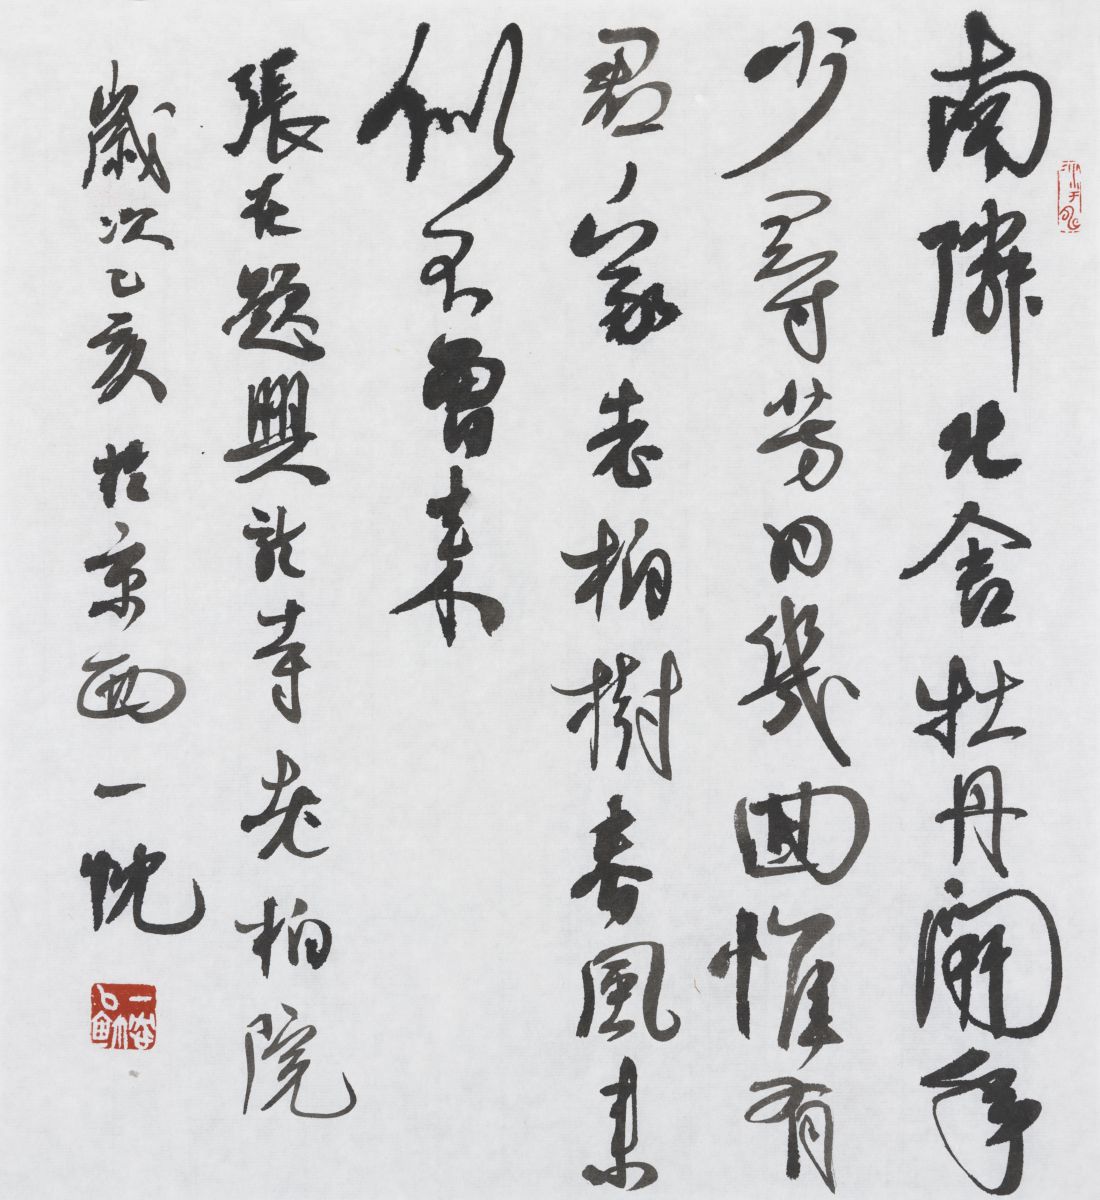 南隣北舍牡丹開年
少尋芳日幾回惟有
君家老柏樹春風來
似不曾來
張在題興龍寺老柏院
歲次乙亥於京西一忱